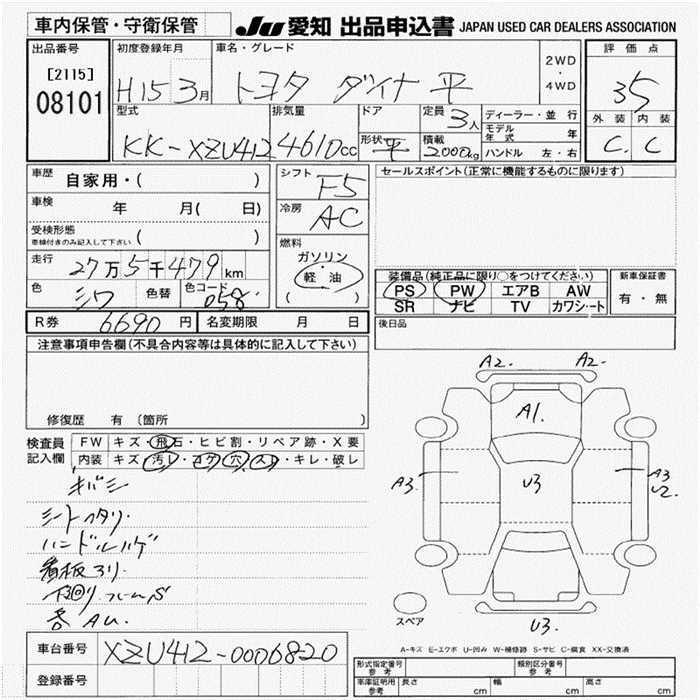 車内保管・守衛保管
JU 愛知 出品申込書 JAPAN USED CAR DEALERS ASSOCIATION
出品番号
[2115]
08101
初度登録年月
H15 3月
車名・グレード
トヨタ ダイナ 平
2WD
・
4WD
評価点
35
外装 内装
C. C
型式
KK-XZU412
排気量
4610cc
ドア
形状 平
定員 3人
積載 2000kg
ディーラー・並行
モデル年式 年
ハンドル 左・右
車歴 自家用・( )
車検 年 月( 日)
受検形態
車検付きのみ記入して下さい ( )
走行 27万5千479km
色 シロ 色替 色コード 058
シフト F5
冷房 AC
燃料
ガソリン・
軽油
( )
セールスポイント(正常に機能するものに限ります)
装備品(純正品に限り○をつけてください)
PS PW エアB AW
SR ナビ TV カワシート
新車保証書
有・無
R券 6690円 名変期限 月 日
後日品
注意事項申告欄(不具合内容等は具体的に記入して下さい)
修復歴 有 (箇所 )
検査員
記入欄
FW キズ・飛石・ヒビ割・リペア跡・X要
内装 キズ・汚レ・コゲ・穴・スレ・キレ・破レ
キバミ
シートヘタリ
ハンドルハゲ
看板
下回り フレームS
各AU.
A2. A2-
A1.
A3. U3 A3
U2.
U3.
スペア
A-キズ E-エクボ U-凹み W-補修跡 S-サビ C-腐食 XX-交換済
車台番号 XZU412-0006820
登録番号
形式指定番号
参考
類別区分番号
参考
車庫証明用
参考
長さ cm 幅 cm 高さ cm